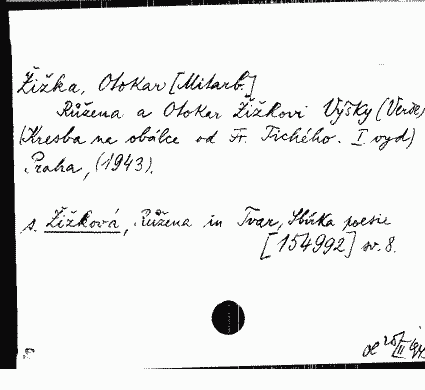 Žižka, Otokar [Mitarb.]
Růžena a Otokar Žižkovi Výšky (Verše)
(Kresba na obálce od Fr. Tichého. I vyd)
Praha, (1943).
s. Žižková, Růžena in Tvar, Sbírka poesie
[154992] sv. 8.